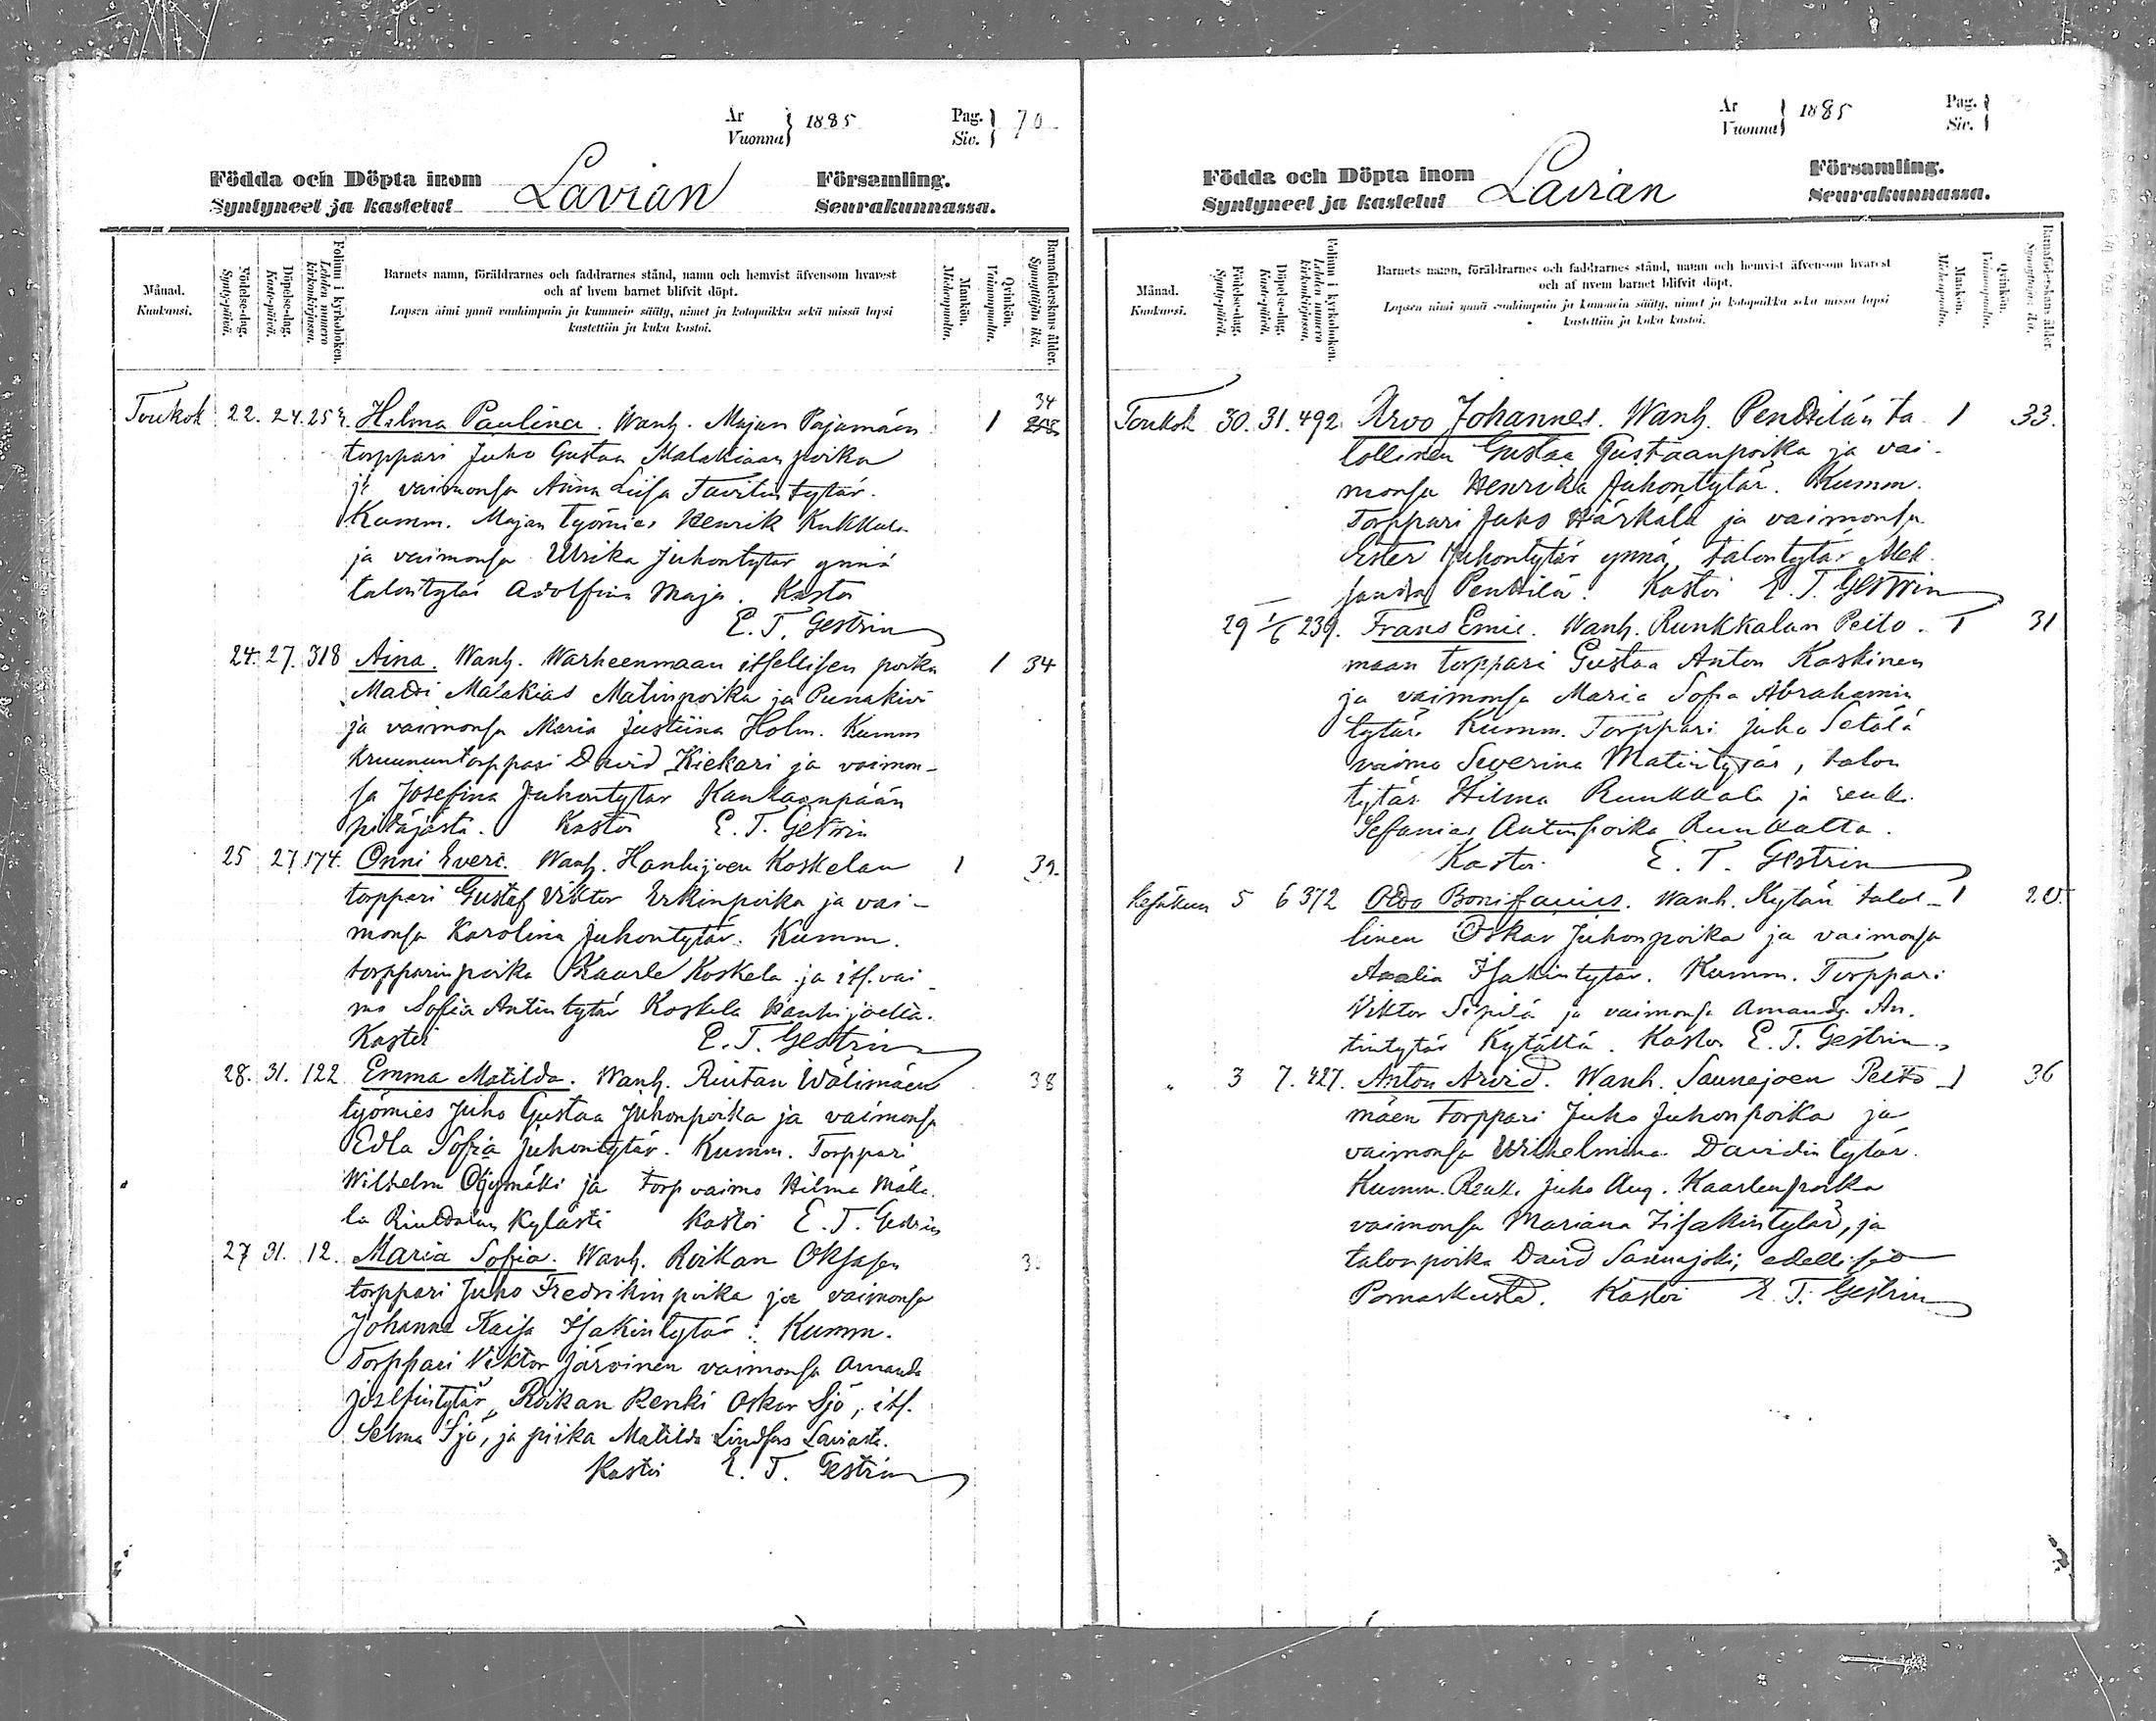 År
Vuonna } 1885
Pag.
Siv. } 70
Födda och Döpta inom
Syntyneet ja kastetut
Lavian
Församling.
Seurakunnassa.
Månad.
Kuukausi.
Födelse-dag.
Synty-päivä.
Döpelse-dag.
Kaste-päivä.
Folium i kyrkoboken.
Lehden numero kirkonkirjassa.
Barnets namn, föräldrarnes och faddrarnes stånd, namn och hemvist äfvensom hvarest
och af hvem barnet blifvit döpt.
Lapsen nimi ynnä vanhimpain ja kummein sääty, nimet ja kotopaikka sekä missä lapsi
kastettiin ja kuka kastoi.
Mankön.
Miehenpuolia.
Qvinkön.
Vaimonpuolia.
Barnaföderskans ålder.
Synnyttäjän ikä.
34
Toukok 22. 24. Hilma Paulina. Wanh. Majan Pajamäen 1
torppari Juho Gustaa Malakiaan poika
ja vaimonsa Anna Liisa Tavitintytär.
Kumm. Majan työmies Henrik Kukkula
ja vaimonsa Ulrika Juhontytär ynnä
talontytär Adolfina Maja. Kastoi
E. T. Gestrin
24. 27. 318 Aina. Wanh. Warheenmaan itsellisen poika 1 34
Matti Malakias Matinpoika ja Punakivi
ja vaimonsa Maria Justiina Holm. Kumm
kruununtorppari David Kiekari ja vaimon-
sa Josefina Juhontytär Kankaanpään
pitäjästä. Kastoi E. T. Gestrin
25 27 174. Onni Everi. Wanh. Hanhijoen Koskelan 1 39
torppari Gustaf Viktor Erkinpoika ja vai-
monsa Karolina Juhontytär. Kumm.
torpparinpoika Kaarle Koskela ja its. vai
mo Sofia Antintytär Koskela Hanhijoelta.
Kastoi E. T. Gestrin
28. 31. 122 Emma Matilda. Wanh. Wälimäen 38
työmies Juho Gustaa Juhonpoika ja vaimonsa
Edla Sofia Juhontytär. Kumm. Torppari
Wilhelm Öljymäki ja Torp vaimo Hilma Mäke
lä kylästä Kastoi E. T. Gestrin
27 31. 12. Maria Sofia. Wanh. Roikan Oksasen
torppari Juho Fredrikin poika ja vaimonsa
Johanna Kaisa Isakintytär. Kumm.
Torppari Viktor Järvinen vaimonsa Amanda
Josefintytär, Roikan Renki Oskar Sjö, its.
Selma Sjö, ja piika Matilda Lindfors Laviasta.
Kastoi E. T. Gestrin
År
Vuonna } 1885
Pag.
Siv. }
Födda och Döpta inom
Syntyneet ja kastetut
Lavian
Församling.
Seurakunnassa.
Månad.
Kuukausi.
Födelse-dag.
Synty-päivä.
Döpelse-dag.
Kaste-päivä.
Folium i kyrkoboken.
Lehden numero kirkonkirjassa.
Barnets namn, föräldrarnes och faddrarnes stånd, namn och hemvist äfvensom hvarest
och af hvem barnet blifvit döpt.
Lapsen nimi ynnä vanhimpain ja kummein sääty, nimet ja kotopaikka sekä missä lapsi
kastettiin ja kuka kastoi.
Mankön.
Miehenpuolia.
Qvinkön.
Vaimonpuolia.
Barnaföderskans ålder.
Synnyttäjän ikä.
Toukok 30. 31. 492 Arvo Johannes. Wanh. Penttilän ta 1 33.
lollinen Gustaa Gustaanpoika ja vai-
monsa Henrika Juhontytär. Kumm.
Torppari Juho Härkälä ja vaimonsa
Ester Juhontytär ynnä talontytär Alek
sandra Penttilä. Kastoi E. T. Gestrin
29 1/6 239. Frans Emil. Wanh. Runkkalan Peito- 1 31
maan torppari Gustaa Anton Koskinen
ja vaimonsa Maria Sofia Abrahamin
tytär. Kumm. Torppari Juho Setälä
vaimo Severina Matintytär, talon
tytär Hilma Runkkala ja renki
Sefanias Antinpoika
Kastoi E. T. Gestrin
Kesäkuu 5 6 372 Otto Bonifacius. Wanh. Kytän talol- 1
linen Oskar Juhonpoika ja vaimonsa
Amalia Isakintytär. Kumm. Torppari
Viktor Sipilä ja vaimonsa Amanda An-
tintytär Kytältä. Kastoi E. T. Gestrin
" 3 7. 427. Anton Arvid. Wanh. Saunajoen Peito 1 36
mäen Torppari Juho Juhonpoika ja
vaimonsa Wilhelmina Davidin tytär.
Kumm. Renki Juho Aug. Kaarlenpoika
vaimonsa Mariana Iisakintytär, ja
talonpoika David Saunajoki, edelliset
Pomarkusta. Kastoi E. T. Gestrin